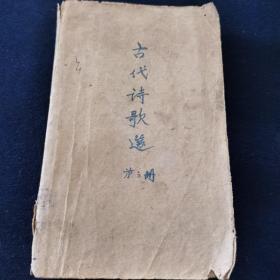 古代诗歌选
第三册